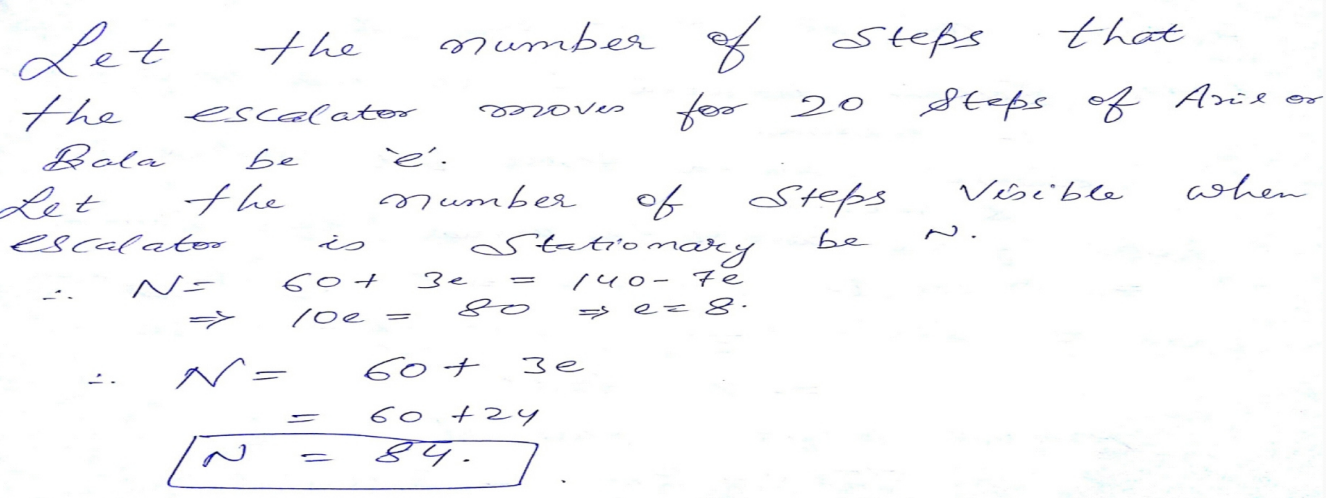 Let the number of steps that
the escalator moves for 20 steps of Asil or
Bala be 'e'.
Let the number of steps visible when
escalator is stationary be N.
∴ N = 60 + 3e = 140 - 7e
⇒ 10e = 80 ⇒ e = 8.
∴ N = 60 + 3e
= 60 + 24
N = 84.